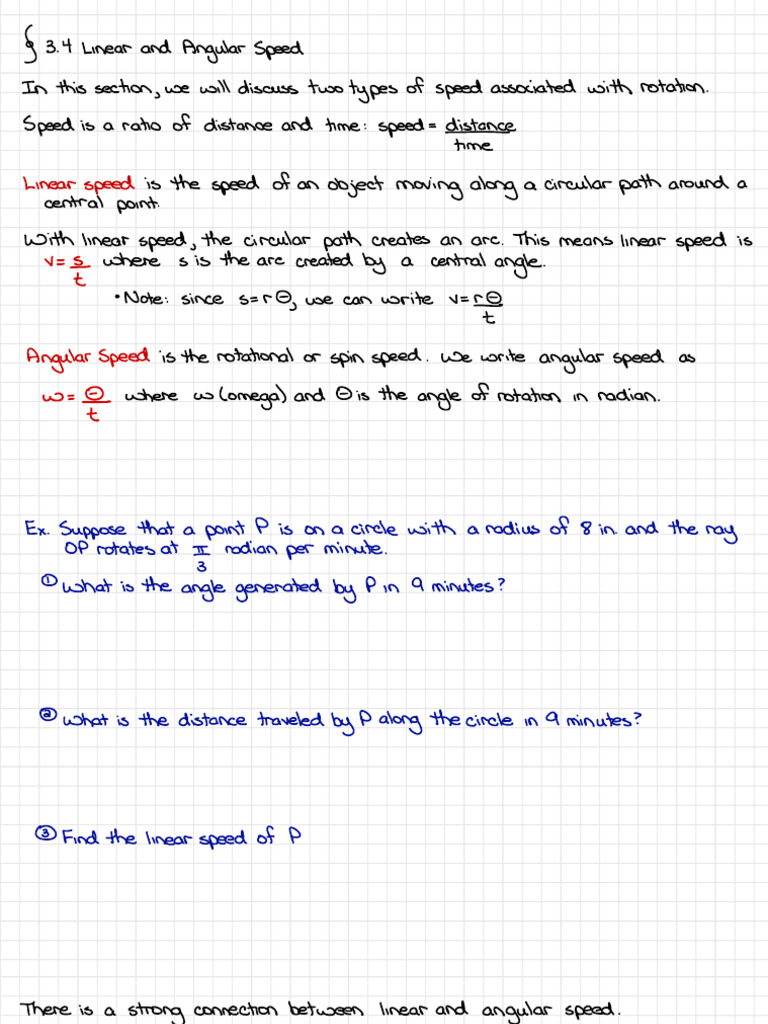 § 3.4 Linear and Angular Speed
In this section, we will discuss two types of speed associated with rotation.
Speed is a ratio of distance and time: speed = distance
time
Linear speed is the speed of an object moving along a circular path around a
central point.
With linear speed, the circular path creates an arc. This means linear speed is
v = s where s is the arc created by a central angle.
t
• Note: since s = rΘ, we can write v = rΘ
t
Angular Speed is the rotational or spin speed. We write angular speed as
ω = Θ where ω (omega) and Θ is the angle of rotation in radian.
t
Ex. Suppose that a point P is on a circle with a radius of 8 in. and the ray
OP rotates at π radian per minute.
3
① What is the angle generated by P in 9 minutes?
② What is the distance traveled by P along the circle in 9 minutes?
③ Find the linear speed of P
There is a strong connection between linear and angular speed.